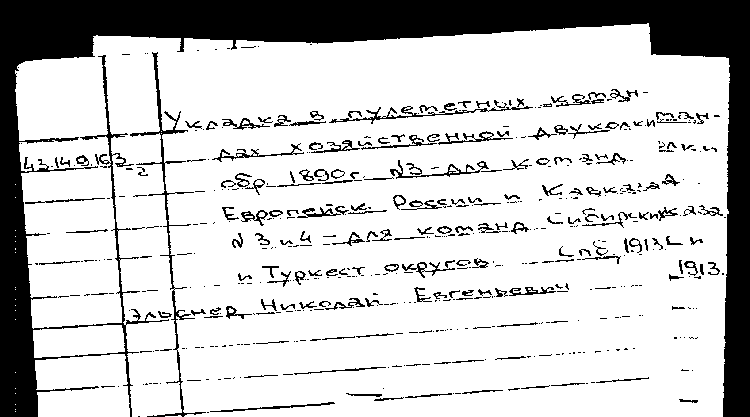 Укладка в пулеметных коман-
43.14.9.163 -2 дах хозяйственной двуколки ман-
обр 1890г. №3-для команд лки
Европейск. России и Кавказа
№3 и 4 - для команд Сибирских каза
и Туркест округов. Спб, 1913. и
Эльснер, Николай Евгеньевич 1913.